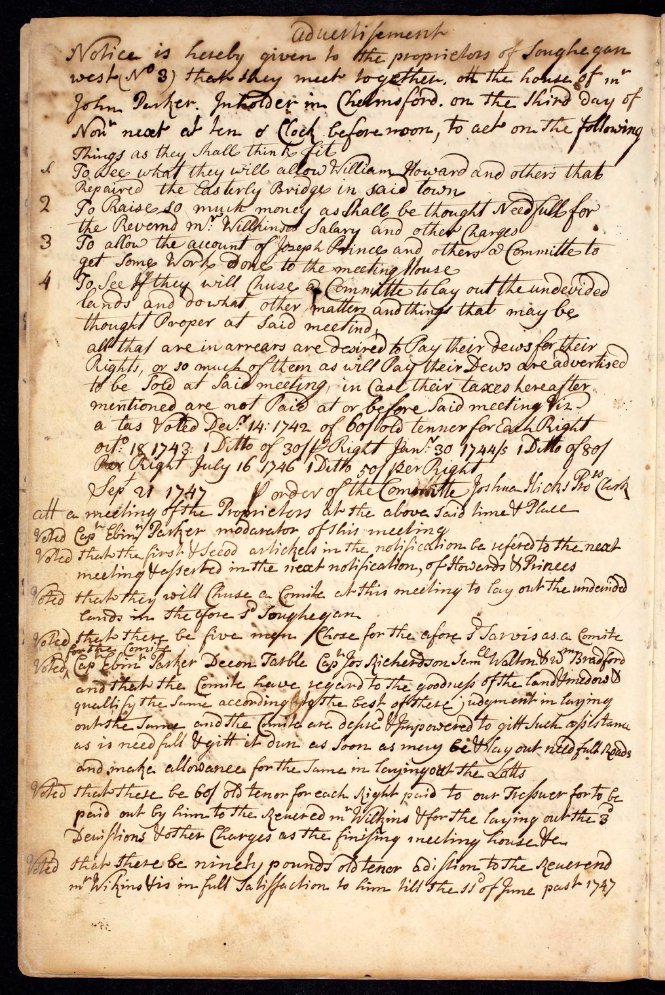 advertisement
Notice is hereby given to the proprietors of Souhegan
west (No 3) that they meet together. att the house of mr
John Parker. Inholder in Chelmsford. on the third day of
Novr next at ten o Clock before noon, to act on the following
Things as they shall think fit
1 To see what they will allow William Howard and others that
Repaired the Easterly Bridge in said town
2 To Raise so much money as shall be thought Needfull for
the Revernd mr Wilkinses Salary and other Charges
3 To allow the account of Joseph Prince and others a Committe to
get some Work done to the meeting House
4 To See if they will Chuse a Committe to lay out the undevided
lands and do what other matters and things that may be
thought Proper at said meeting,
all that are in arrears are desired to Pay their dews for their
Rights, or so much of them as will Pay their Dews are advertised
to be Sold at said meeting, in Case their taxes hereafter
mentioned are not Paid at or before said meeting Viz
a tax Voted Decr 14: 1742 of 60/ old tenner for Each Right
octo 18 1743: 1 Ditto of 30/ Right Janr 30 1744/5 1 Ditto of 80/
Per Right July 16 1746 1 Ditto 50/ Per Right
Sept 21 1747 P order of the Committe Joshua Hicks Prors Clark
att a meeting of the Proprietors at the above said time & Place
Voted Capt Ebinr Parker moderator of this meeting
Voted that the first & Secod artickels in the notification be refered to the next
meeting & asserted in the next notification, of Howards & Princes
Voted that they will Chuse a Comite at this meeting to lay out the undevided
lands in the afore sd Soughegan
Voted that there be five men Chose for the afore sd Sarvis as a Comite
for the Comite
Voted, Capt Ebinr Parker Decon Tarble Capt Jos Richerdson Samll Walton & Wm Bradford
and that the Comite have regard to the goodness of the land & medow &
qualify the same according to the best of there judgment in laying
out the Same and the Comite are desire & Impowered to gitt such assistanc
as is needfull & gitt it dun as soon as mery be & lay out needfull Roads
and make allowance for the same in laying out the Lotts
Voted that there be 60/ old tenor for each Right paid to our Tressuer for to be
paid out by him to the Revered mr Wilkins & for the laying out the 3d
Devistions & other Charges as the finising meeting house &c
Voted that there be ninety pounds old tenor adistion to the Reverend
mr Wilkins is in full Satisfaction to him till the of June past 1747